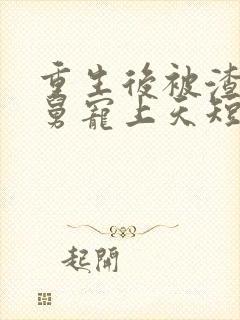 重生後被渣
舅寵上天短
起開